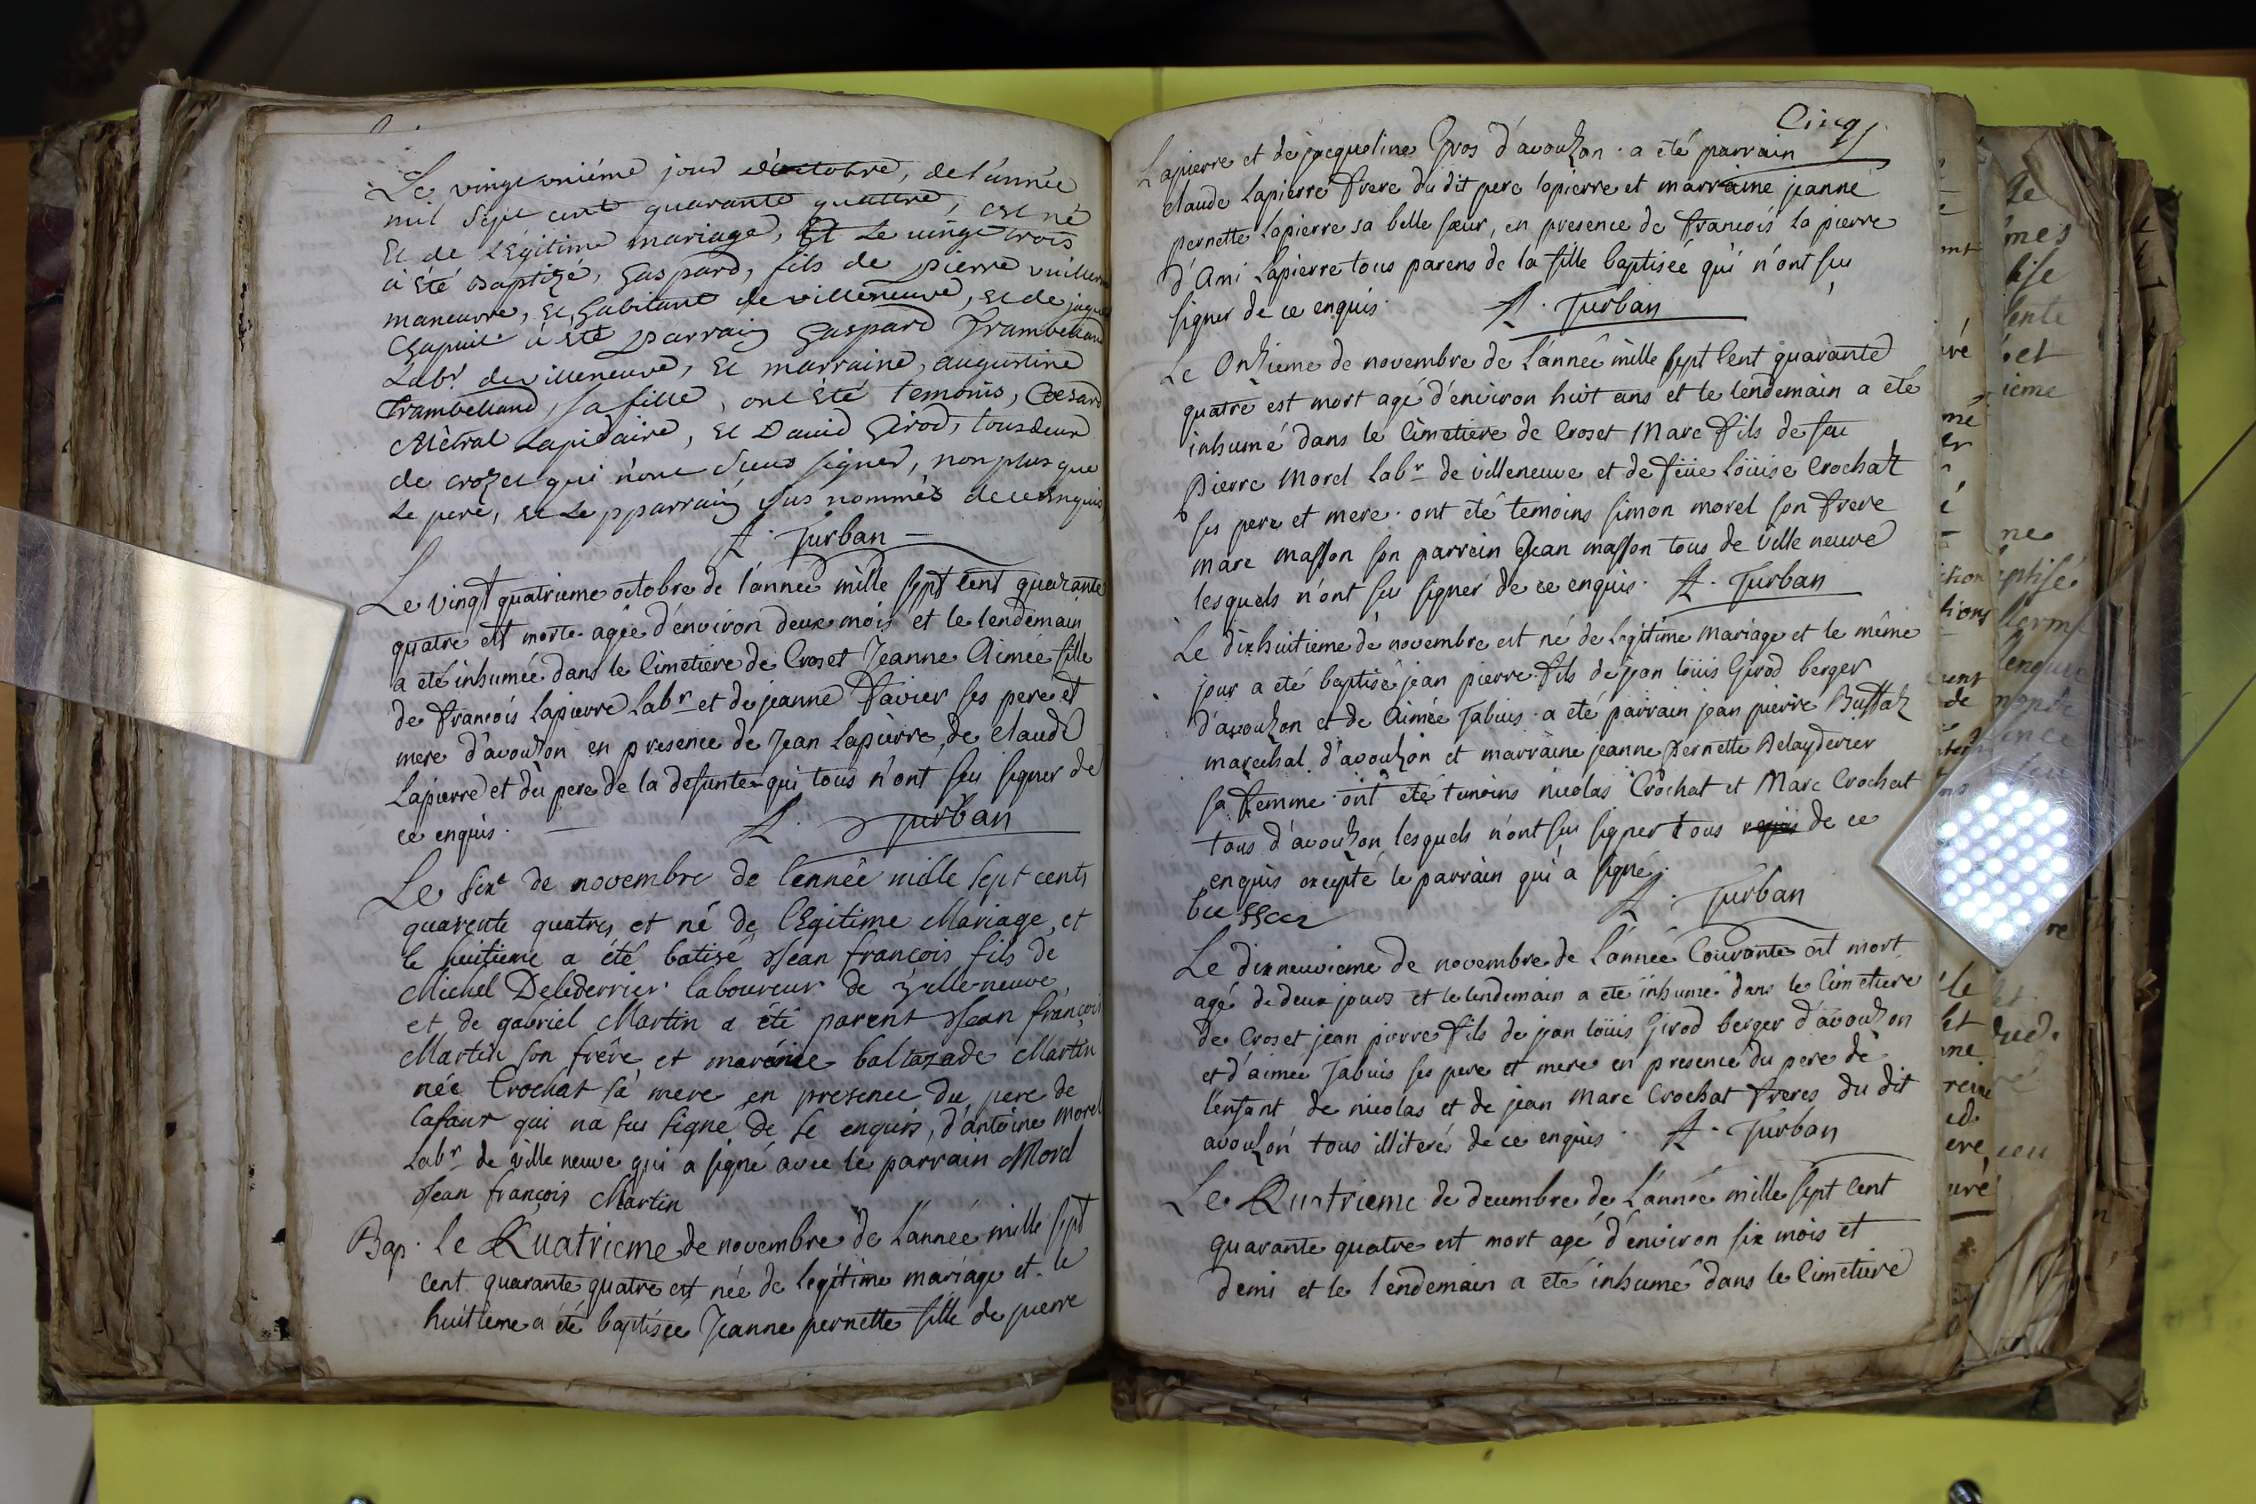 Le vingt uniéme jour d'octobre, de l'année
mil sept cent quarante quattre, est né
Et de Légitime mariage, Et Le vingt trois
à été Baptizé, Gaspard, fils de pierre
maneuvre, et habitant de villeneuve, et de
Chapuit à été parrain Gaspard Trambelland
Labr. de villeneuve, Et marraine, augustine
Trambelland, sa fille, ont été temoins, Cœsard
Métral Lapidaire, et David Girod, tous deux
de crozet qui n'ont sceus signer, non plus que
Le pere, et Le pparrain sus nommés de ce enquis
A. Turban
Le vingt quatrieme octobre de l'année mille sept cent quarante
quatre est morte agée d'environ deux mois et le lendemain
a eté inhumée dans le Cimetiére de Croset Jeanne Aimée fille
de François Lapierre Labr et de jeanne Favier ses pere et
mere d'avouzon en presence de Jean Lapierre, de claude
Lapierre et du pere de la defunte qui tous n'ont seu signer de
ce enquis. A. Turban
Le sixe de novembre de lennée mille sept cents
quarente quatres et né de lEgitime Mariage, et
le huitieme a été batisé Jean françois fils de
Michel Delederrier laboureur de ville-neuve
et de gabriel Martin a été parent Jean françois
Martin son frére, et maraine baltazade Martin
née Crochat sa mere en presence du pere de
Cafant qui na sus signé de se enquis, d'antoine morel
Labr de ville neuve qui a signé avec le parrain Morel
Jean françois Martin
Bap. le Quatrieme de novembre de L'année mille sept
cent quarante quatre est née de legitime mariage et le
huitieme a été baptisée Jeanne pernette fille de pierre
Cinq
Lapierre et de jacqueline Gros d'avouzon. a eté parrain
claude Lapierre frere du dit pere lapierre et marraine jeanne
pernette Lapierre sa belle sœur, en presence de François la pierre
d'Ami Lapierre tous parens de la fille baptisée qui n'ont sus
signer de ce enquis. A. Turban
Le Onzieme de novembre de L'année mille sept Cent quarante
quatre est mort agé d'environ huit ans et le lendemain a eté
inhumé dans le Cimetiere de Croset Marc Fils de feu
Pierre Morel Labr de villeneuve et de feüe Loüise Crochat
ses pere et mere. ont eté temoins simon morel son frere
marc masson son parrein Jean masson tous de ville neuve
lesquels n'ont sus signer de ce enquis. A. Turban
Le dixhuitieme de novembre est né de legitime mariage et le même
jour a eté baptisé jean pierre fils de jean loüis Girod berger
d'avouzon et de Aimée Tabuis. a eté parrain jean pierre Bussaz
marechal d'avouzon et marraine jeanne Pernette Delayderier
sa femme ont eté temoins nicolas Crochat et Marc Crochat
tous d'avouzon lesquels n'ont sus signer tous de ce
enquis excepté le parrain qui a signé.
bussaz A. Turban
Le dixneuvieme de novembre de L'année Courante est mort
agé de deux jours et le lendemain a eté inhumé dans le Cimetiere
de Croset jean pierre fils de jean loüis Girod berger d'avouzon
et d'aimée Tabuis ses pere et mere en presence du pere de
l'enfant de nicolas et de jean Marc Crochat freres du dit
avouzon tous illiterés de ce enquis. A. Turban
Le Quatrieme de decembre de L'année mille sept Cent
quarante quatre est mort agé d'environ six mois et
demi et le lendemain a eté inhumé dans le Cimetiere